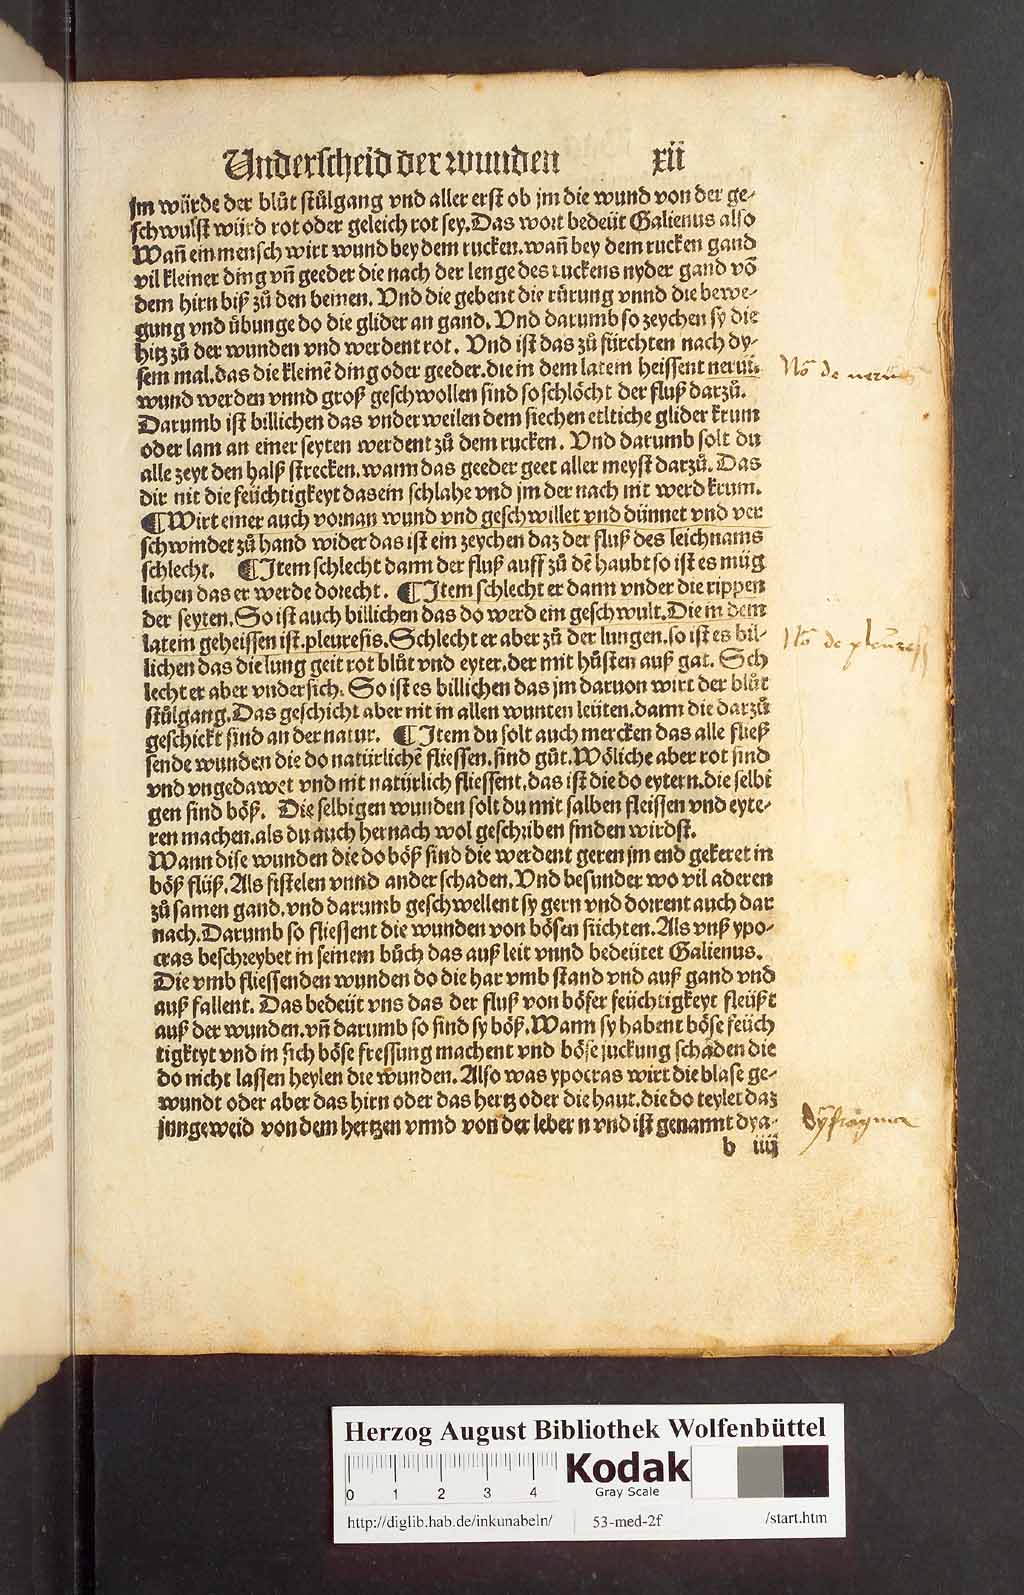 Underscheid der wunden xii
jm würde der blůt stůlgang vnd aller erst ob jm die wund von der ge-
schwulst würd rot oder geleich rot sey. Das wort bedeüt Galienus also
Wañ ein mensch wirt wund bey dem rucken. wañ bey dem rucken gand
vil kleiner ding vñ geeder die nach der lenge des ruckens nyder gand võ
dem hirn biß zů den beinen. Vnd die gebent die růrung vnnd die bewe-
gung vnd übunge do die glider an gand. Vnd darumb so zeychen sy die
hitz zů der wunden vnd werdent rot. Vnd ist das zů fürchten nach dy-
sem mal. das die kleinẽ ding oder geeder. die in dem latein heissent nerui.
wund werden vnnd groß geschwollen sind so schlöcht der fluß darzů.
Darumb ist billichen das vnder weilen dem siechen etltiche glider krum
oder lam an einer seyten werdent zů dem rucken. Vnd darumb solt du
alle zeyt den halß strecken. wann das geeder geet aller meyst darzů. Das
dir nit die feüchtigkeyt dasein schlahe vnd jm der nach nit werd krum.
¶ Wirt einer auch vornan wund vnd geschwillet vnd dünnet vnd ver
schwindet zů hand wider das ist ein zeychen daz der fluß des leichnams
schlecht. ¶ Item schlecht dann der fluß auff zů dẽ haubt so ist es müg
lichen das er werde dorecht. ¶ Item schlecht er dann vnder die rippen
der seyten. So ist auch billichen das do werd ein geschwult. Die in dem
latein geheissen ist. pleuresis. Schlecht er aber zů der lungen. so ist es bil-
lichen das die lung geit rot blůt vnd eyter. der mit hůsten auß gat. Sch
lecht er aber vnder sich. So ist es billichen das jm daruon wirt der blůt
stůlgang. Das geschicht aber nit in allen wunten leüten. dann die darzů
geschickt sind an der natur. ¶ Item du solt auch mercken das alle fließ
sende wunden die do natürlichẽ fliessen. sind gůt. Wöliche aber rot sind
vnd vngedawet vnd nit natürlich fliessent. das ist die do eytern. die selbi
gen sind böß. Die selbigen wunden solt du mit salben fleissen vnd eyte-
ren machen. als du auch hernach wol geschriben finden wirdst.
Wann dise wunden die do böß sind die werdent geren jm end gekeret in
böß flüß. Als fistelen vnnd ander schaden. Vnd besunder wo vil aderen
zů samen gand. vnd darumb geschwellent sy gern vnd dorrent auch dar
nach. Darumb so fliessent die wunden von bösen früchten. Als vnß ypo-
cras beschreybet in seinem bůch das auß leit vnnd bedeütet Galienus.
Die vmb fliessenden wunden do die har vmb stand vnd auß gand vnd
auß fallent. Das bedeüt vns das der fluß von böser feüchtigkeyt fleüßt
auß der wunden. vñ darumb so sind sy böß. Wann sy habent böse feüch
tigkeyt vnd in sich böse fressung machent vnd böse juckung schaden die
do nicht lassen heylen die wunden. Also was ypocras wirt die blase ge-
wundt oder aber das hirn oder das hertz oder die haut. die do teylet daz
jungeweid von dem hertzen vnnd von der lebern vnd ist genannt dya-
b iiij
No de neruis
No de pleuresi
dyfragma
Herzog August Bibliothek Wolfenbüttel
0 1 2 3 4
Kodak
Gray Scale
http://diglib.hab.de/inkunabeln/ 53-med-2f /start.htm